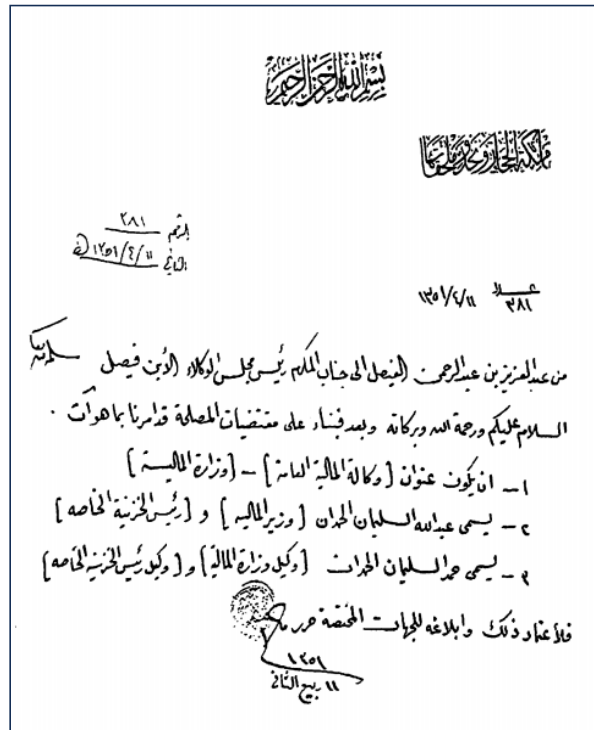 بسم الله الرحمن الرحيم
مملكة الحجاز ونجد وملحقاتها
الرقم ٣٨١
التاريخ ١٣٥١/٤/١١
عدد ٣٨١
١٣٥١/٤/١١
من عبدالعزيز بن عبدالرحمن الفيصل الى جناب المكرم رئيس مجلس الوكلاء الابن فيصل سلمه الله
السلام عليكم ورحمة الله وبركاته وبعد فبناء على مقتضيات المصلحة قد امرنا بما هو آت .
١ - ان يكون عنوان [ وكالة المالية العامة ] - [ وزارة المالية ]
٢ - يسمى عبدالله السليمان الحمدان [ وزير المالية ] و [ رئيس الخزينة الخاصه ]
٣ - يسمى حمد السليمان الحمدان [ وكيل وزارة المالية ] و [ وكيل رئيس الخزينة الخاصه ]
فلاعتماد ذلك وابلاغه للجهات المختصة حرر
١٣٥١
١١ ربيع الثاني